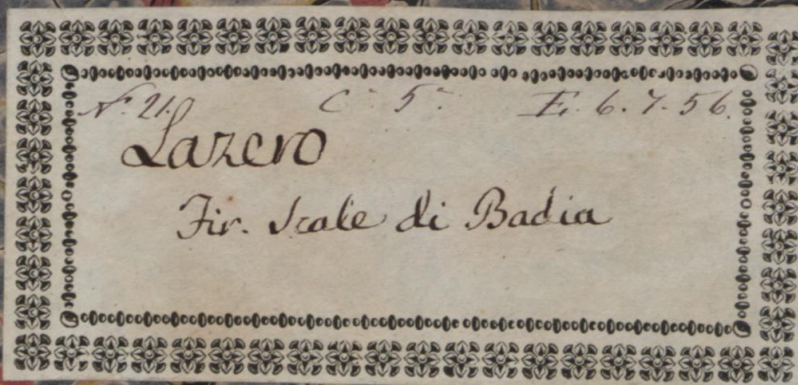 N. 21. C. 5. E. 6. 7. 56.
Lazero
Fir. Scale di Badia